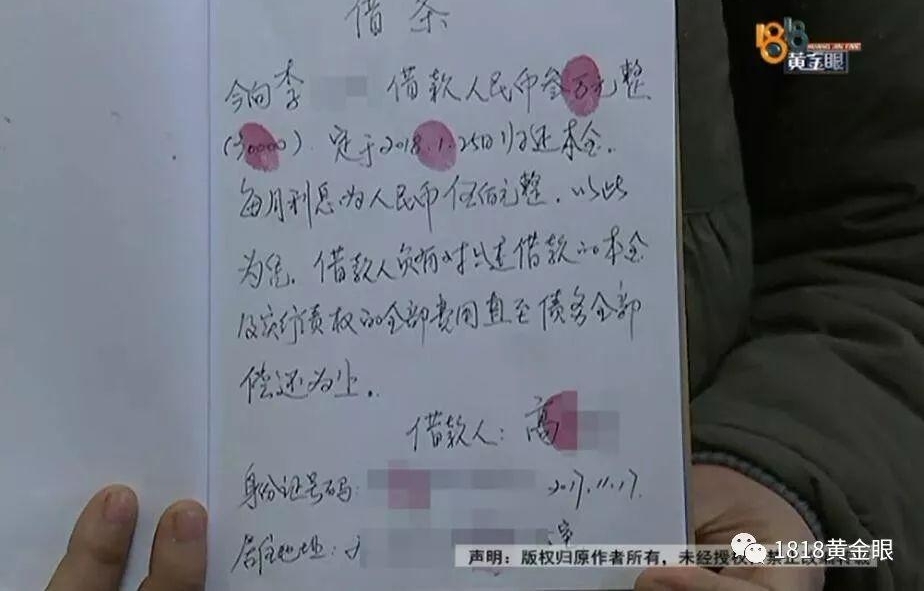 借条
1818
HUANG JIN YAN
黄金眼
今向李 借款人民币叁万元整
(30000). 定于2018.1.25日归还本金.
每月利息为人民币伍佰元整. 以此
为凭. 借款人负有对上述借款的本金
及实行债权的全部费用直至债务全部
偿还为止.
借款人: 高
身份证号码: 2017.11.17.
居住地址:
声明: 版权归原作者所有, 未经授权
1818黄金眼